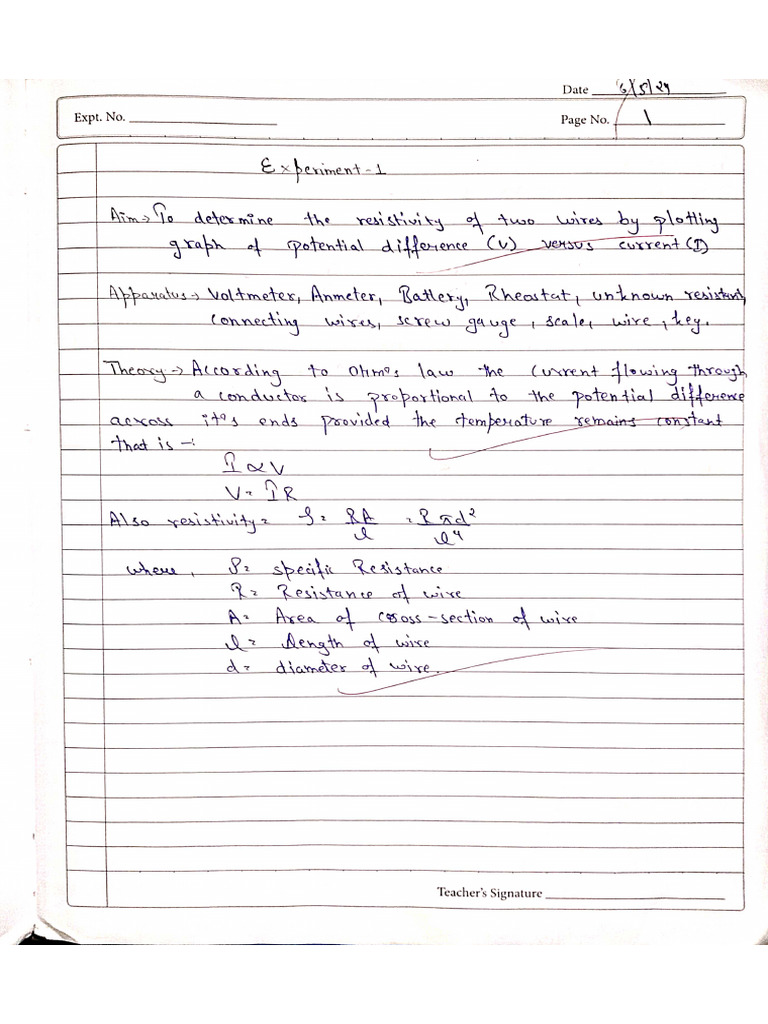 Date 6/5/24
Expt. No.
Page No. 1
Experiment-1
Aim→ To determine the resistivity of two wires by plotting
graph of potential difference (V) versus current (I)
Apparatus→ Voltmeter, Anmeter, Battery, Rheostat, unknown resistant,
connecting wires, screw gauge, scale, wire, key.
Theory→ According to Ohm's law the current flowing through
a conductor is proportional to the potential difference
across it's ends provided the temperature remains constant
that is -:
I ∝ V
V = IR
Also resistivity = ρ = RA/l = R πd²/l4
where, ρ = specific Resistance
R = Resistance of wire
A = Area of cross-section of wire
l = length of wire
d = diameter of wire.
Teacher's Signature